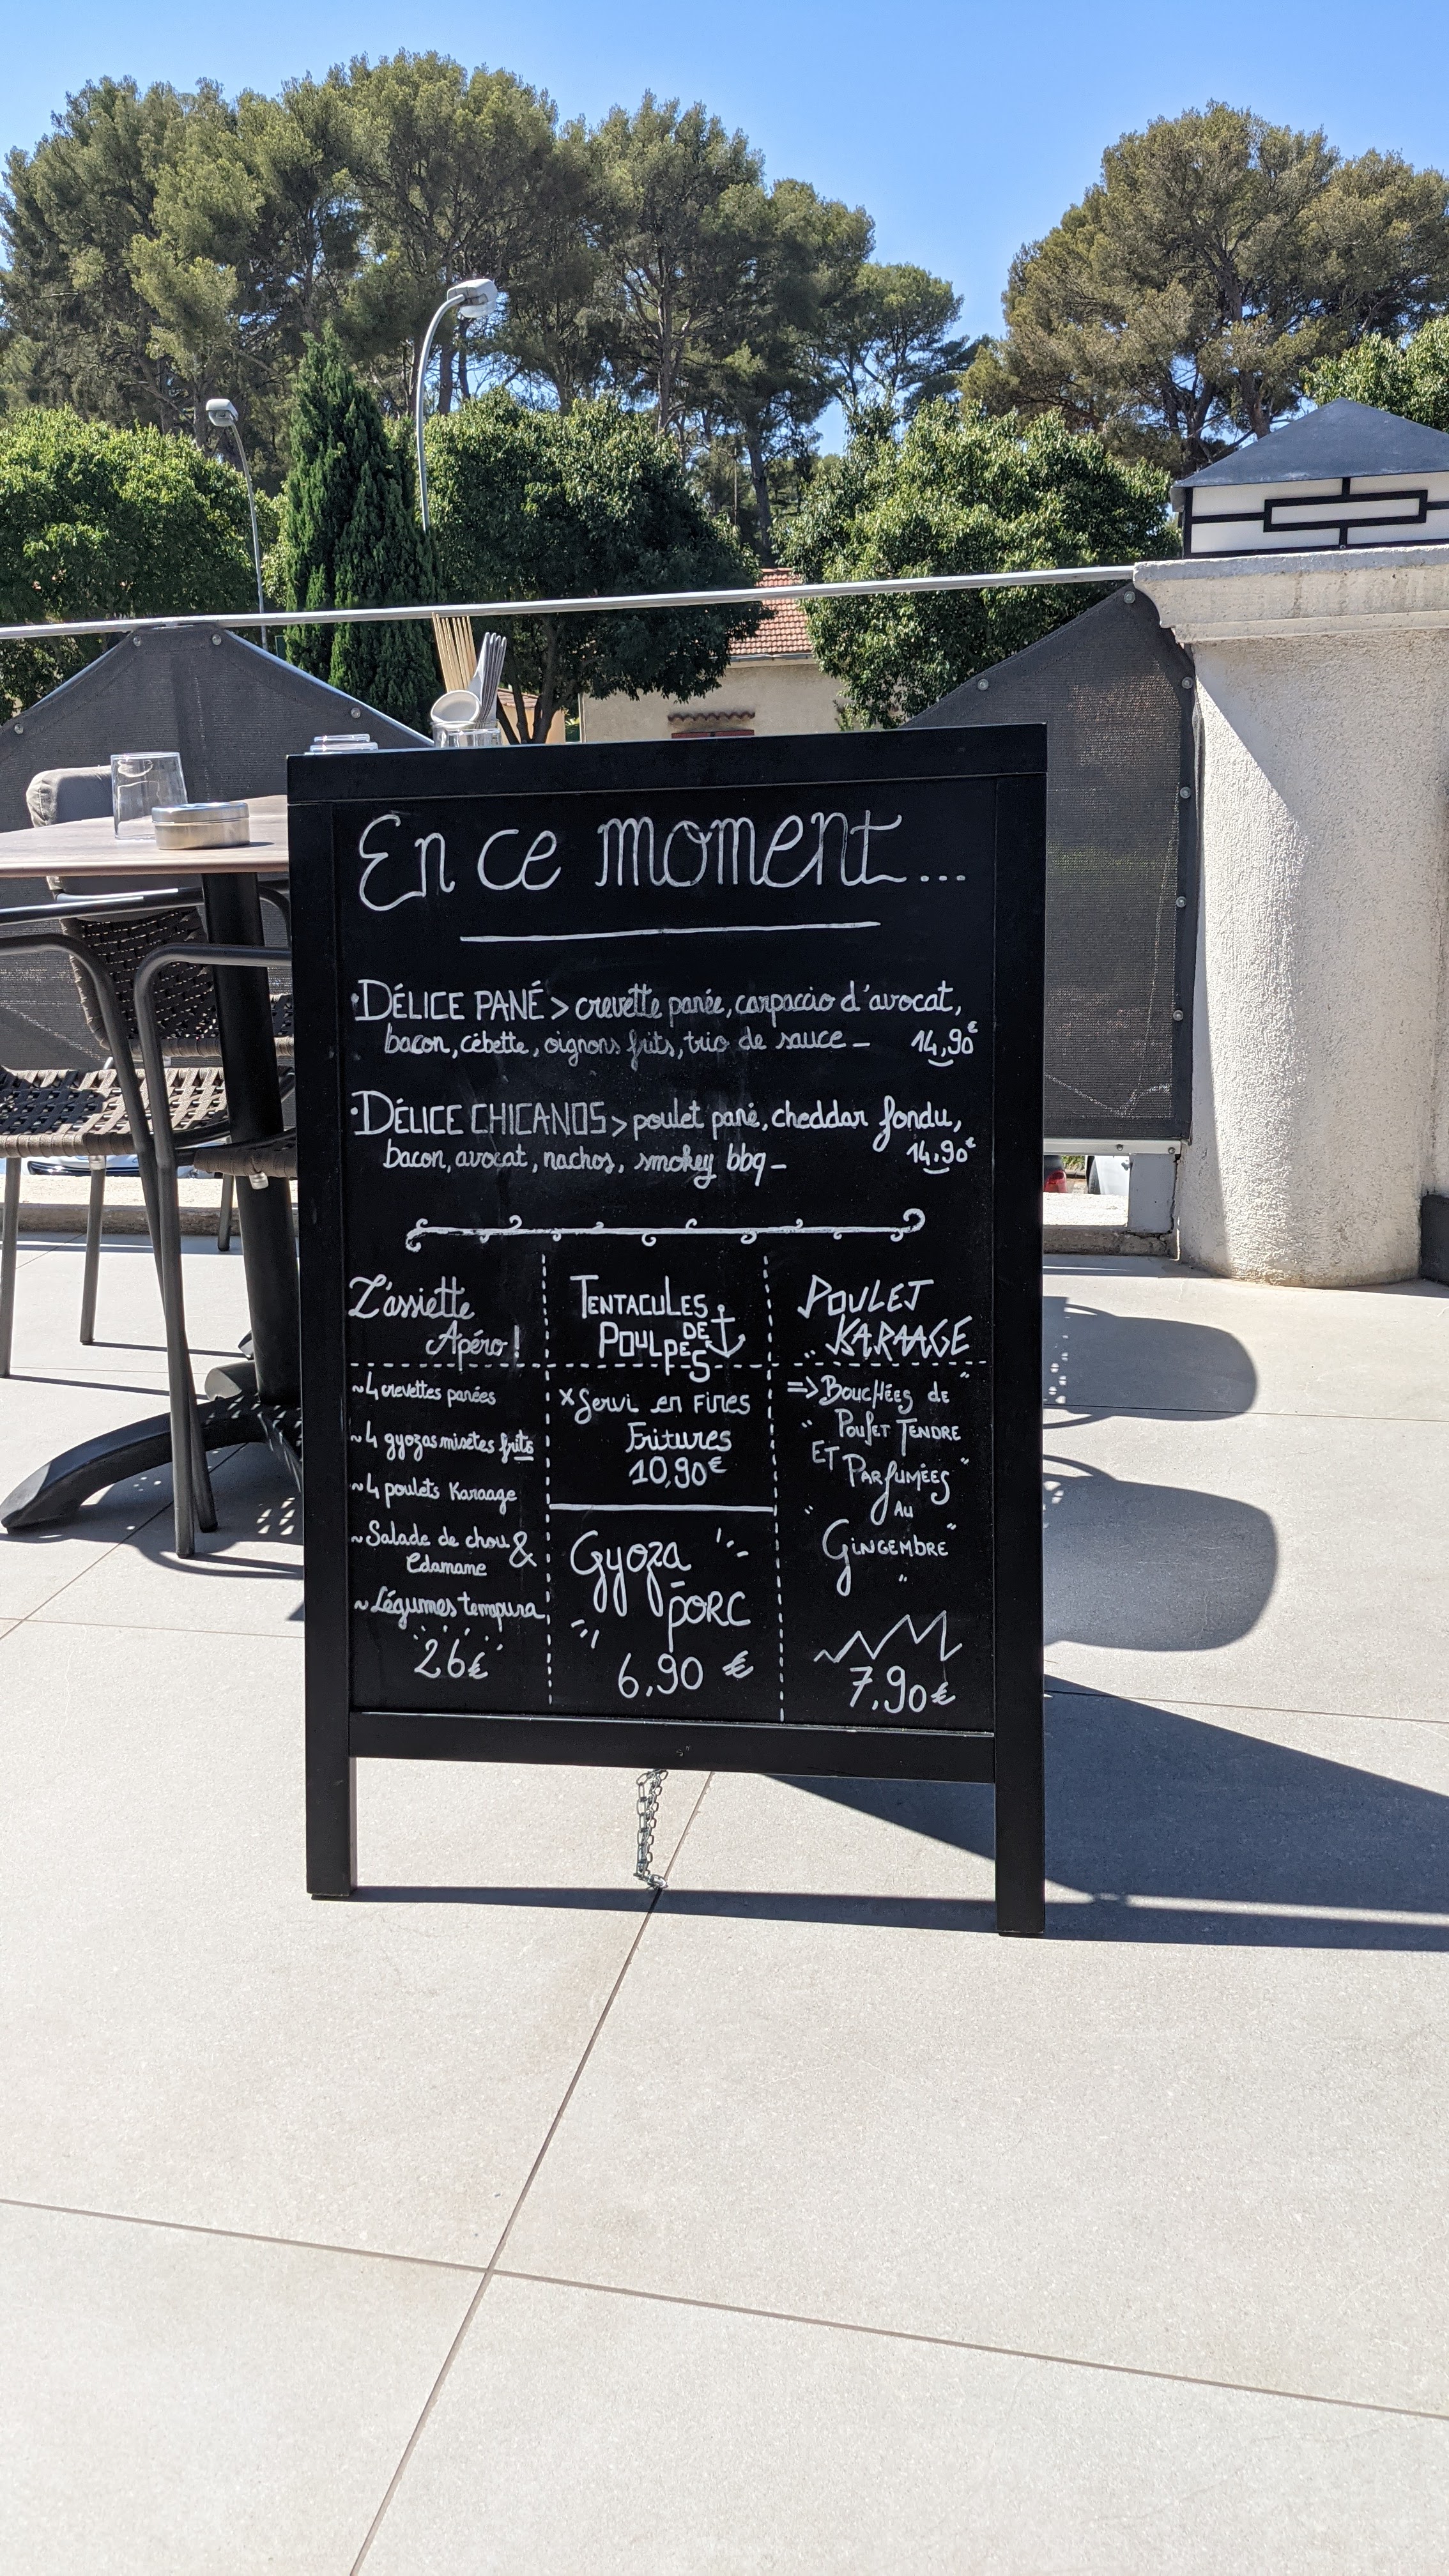 En ce moment...
• DÉLICE PANÉ > crevette panée, carpaccio d'avocat,
bacon, cébette, oignons frits, trio de sauce – 14,90€
• DÉLICE CHICANOS > poulet pané, cheddar fondu,
bacon, avocat, nachos, smokey bbq – 14,90€
L'assiette
Apéro !
~4 crevettes panées
~4 gyozas mixtes frits
~4 poulets Karaage
~Salade de chou &
Edamame
~Légumes tempura
26€
TENTACULES
DE
POULPES
x Servi en Fines
Fritures
10,90€
Gyoza
PORC
6,90 €
POULET
KARAAGE
=> BOUCHÉES de
POULET TENDRE
ET PARFUMÉES
AU
GINGEMBRE
7,90€